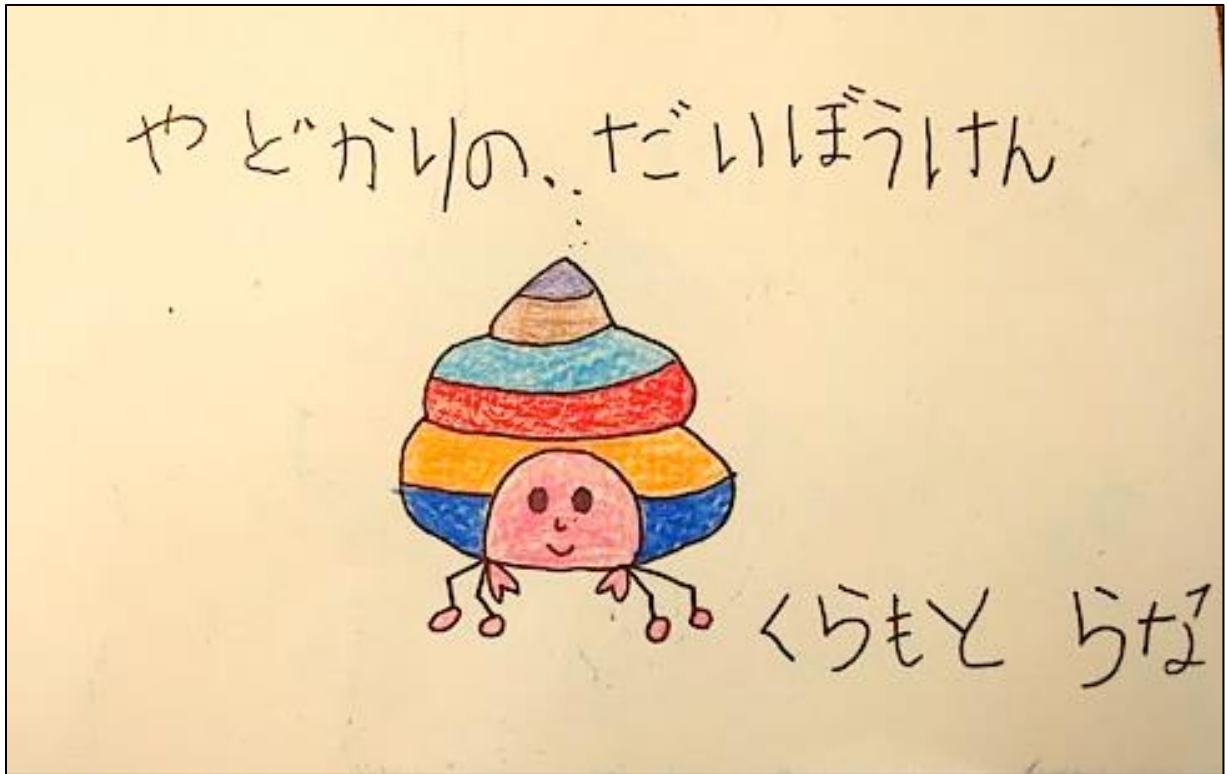 やどかりの、だいぼうけん
くらもと らな